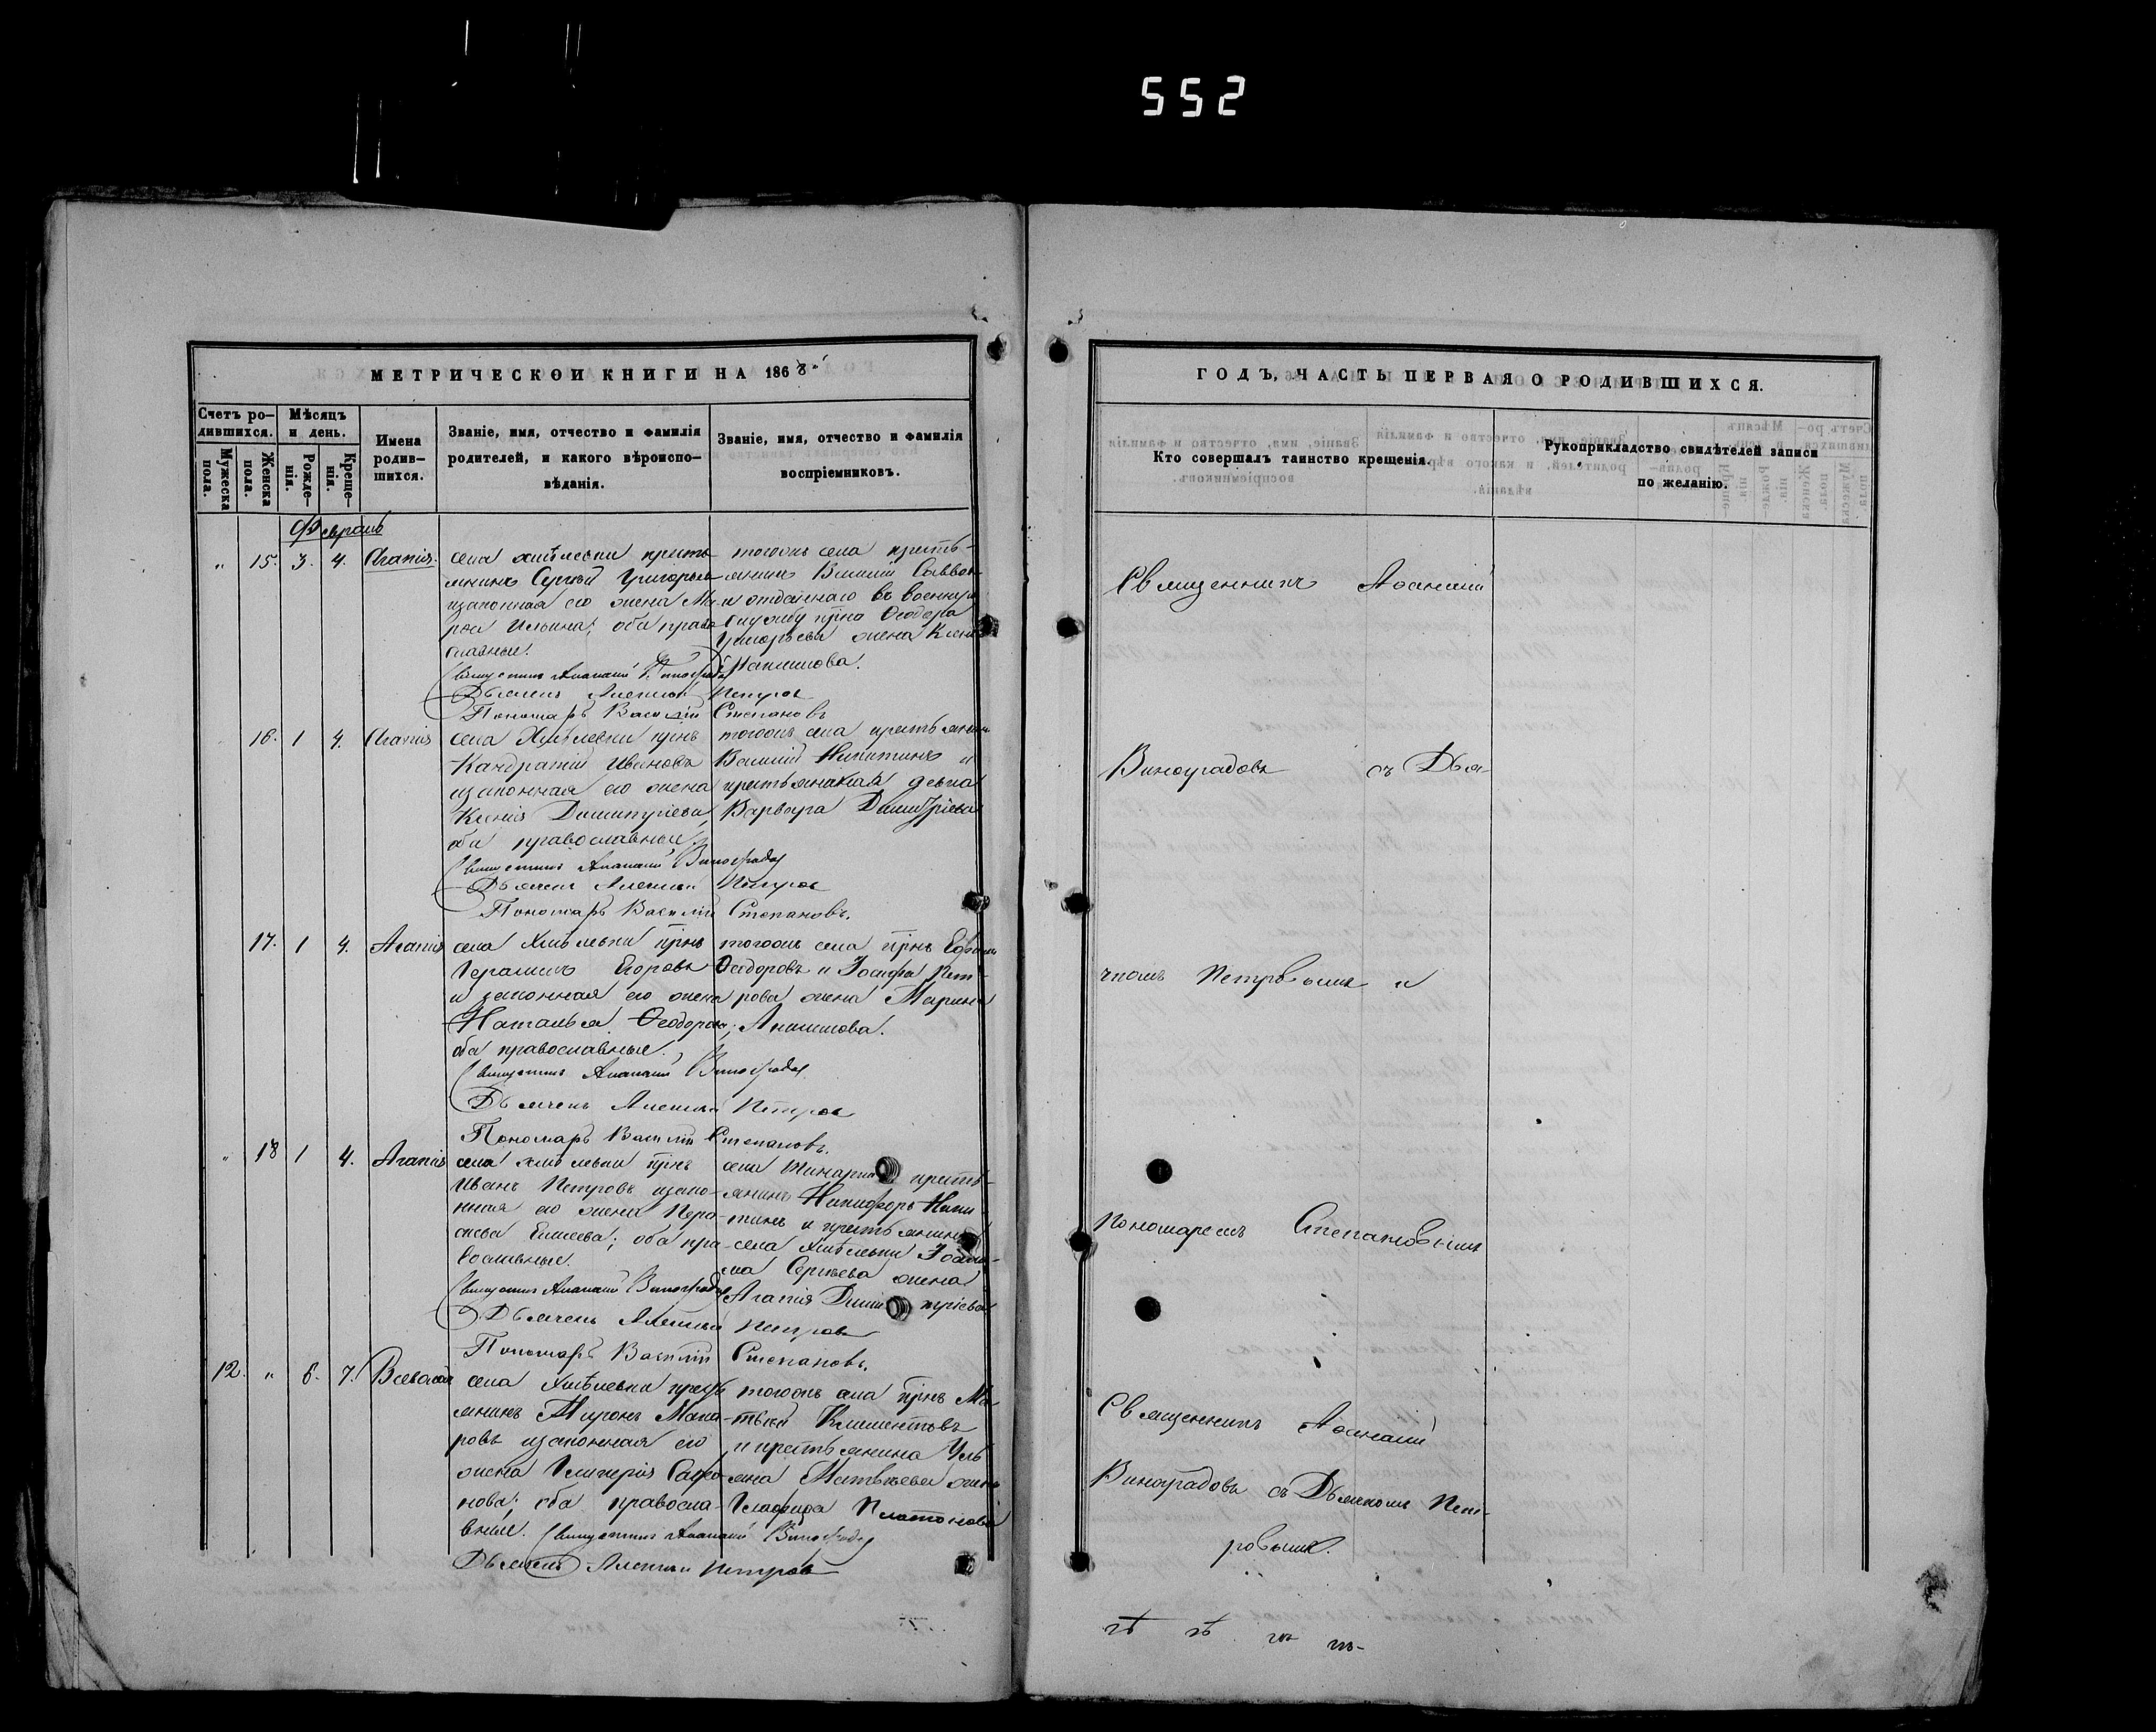 552
МЕТРИЧЕСКОИ КНИГИ НА 1868
Счетъ ро-
дившихся.
Мужеска
пола.
Женска
пола.
Мѣсяцъ
и день.
Рожде-
нія.
Креще-
нія.
Имена
родив-
шихся.
Званіе, имя, отчество и фамилія
родителей, и какого вѣроиспо-
вѣданія.
Званіе, имя, отчество и фамилія
воспріемниковъ.
Февраль
" 15. 3. 4. Агапія.
села Хмѣлевки кресть-
янинъ Сергѣй Григорьев
изаконная его жена Ма-
Ильина; оба право-
славные.
Священникъ Афанасій Виноградов
Дьячекъ Алексѣй Петров
Пономарь Василій Степановъ
тогожъ села кресть-
янинъ Василій Савввон
и отданнаго въ военную
службу крнo Ѳеодора
Григорьева жена Ксенія
16. 1 4. Агапія
села Хмѣлевки крнъ
Кандратій Ивановъ
изаконная его жена
Ксенія Димитріева,
оба православные.
Священникъ Афанасій Виноградов
Дьячекъ Алексѣй Петров
Пономарь Василій Степановъ.
тогожъ села крестьянинъ
Василій Никитинъ и
крестьянская девка
Варвара Димитріева
17. 1 4. Агапія
села Хмѣлевки крнъ
Герасимъ Егоровъ
и законная его жена
Наталья Ѳеодорова;
оба православные.
Священникъ Афанасій Виноградов
Дьячекъ Алексѣй Петров
Пономарь Василій Степановъ.
тогожъ села крнъ Ефимъ
Ѳеодоровъ и Іосифа Пет-
рова жена Марина
Анисимова.
" 18 1 4. Агапія
села Хмѣлевки крнъ
Иванъ Петровъ изако-
нная его жена
Елисеева; оба пра-
вославные.
Священникъ Афанасій Виноградов
Дьячекъ Алексѣй Петров
Пономарь Василій Степановъ.
села кресть-
янинъ Никифоръ Ники-
тинъ и крестьянина
села Хмѣлевки
Сергѣева жена
Агапія Димитріева
12. " 6. 7.
села Хмѣлевки кресть-
янинъ Миронъ Мака-
ровъ изаконная его
жена Гликерія Сафо-
нова; оба правосла-
вные. Священникъ Афанасій Виноградов
Дьячекъ Алексѣй Петров
тогожъ села крнъ Ма-
твѣй Климентовъ
и крестьянина Уль-
яна Матвѣева жена
Глафира Платонова
ГОДЪ, ЧАСТЬ ПЕРВАЯ О РОДИВШИХСЯ.
Кто совершалъ таинство крещенія.
Рукоприкладство свидѣтелей записи
по желанію.
Священникъ Афанасій
Виноградовъ съ Дья-
чкомъ Петровымъ и
Пономаремъ Степановымъ
Священникъ Афанасій
Виноградовъ съ Дьячкомъ Пет-
ровымъ.